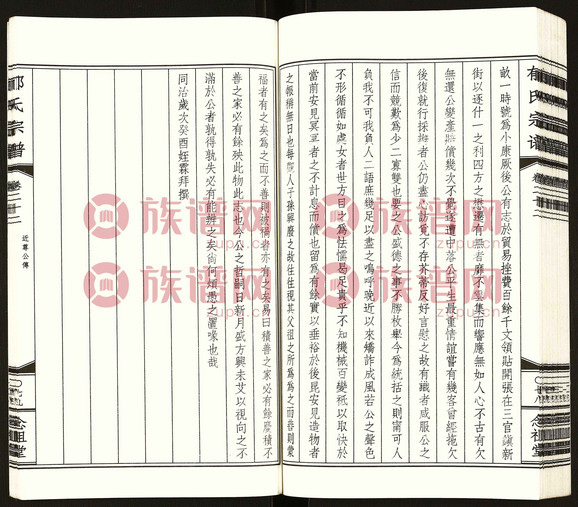 畝一時號為小康厥後公有志於貿易挫費百餘千文領貼開張在三官鎮新
街以逐什一之利四方之懋遷有無者靡不雲集而響應無如人心不古有欠
無還公變產賠償幾次不覺逐遭中落公平生最重情誼嘗有幾客曾經拖欠
後復就行採辦者公仍盡心訪覓不存芥蒂反好言慰之故有識者咸服公之
信而競歎為少二寡雙也要之公盛德之事不勝枚舉今為統括之則甯可人
負我不可我負人二語庶幾足以盡之嗚呼晚近以來矯詐成風若公之聲色
不形循循如處女者世方目之為怯懦曷足貴乎不知機械百變秪以取快於
當前安見冥冥者之不計息而償也留為有餘實以垂裕於後昆安見造物者
之報稱無日也每觀人子孫興廢之故往往視其父祖之所為為之而善則蒙
福者有之矣為之而不善則被禍者亦有之矣易曰積善之家必有餘慶積不
善之家必有餘殃此物此志也今公之哲嗣日新月盛方興未艾以視向之不
滿於公者孰得孰失必有能辨之矣尚何煩愚之置喙也哉
同治歲次癸酉姪霖拜撰
氏宗譜
卷二十二
近尊公傳
念祖堂
族譜网
zupu.cn